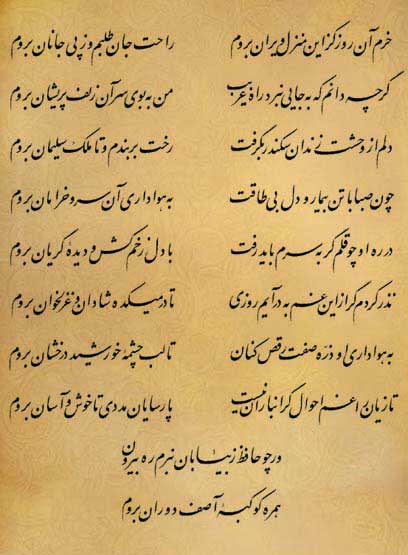 خرم آن روز کز این منزل ویران بروم راحت جان طلبم و ز پی جانان بروم
گرچه دانم که به جایی نبرد راه غریب من به بوی سر آن زلف پریشان بروم
دلم از وحشت زندان سکندر بگرفت رخت بربندم و تا ملک سلیمان بروم
چون صبا با تن بیمار و دل بی طاقت به هواداری آن سرو خرامان بروم
در ره او چو قلم گر به سرم باید رفت با دل زخم کش و دیدهٔ گریان بروم
نذر کردم گر از این غم به درآیم روزی تا در میکده شادان و غزلخوان بروم
به هواداری او ذره صفت رقص کنان تا لب چشمهٔ خورشید درخشان بروم
تازیان را غم احوال گرانباران نیست پارسایان مددی تا خوش و آسان بروم
ور چو حافظ ز بیابان نبرم ره بیرون
همره کوکبهٔ آصف دوران بروم